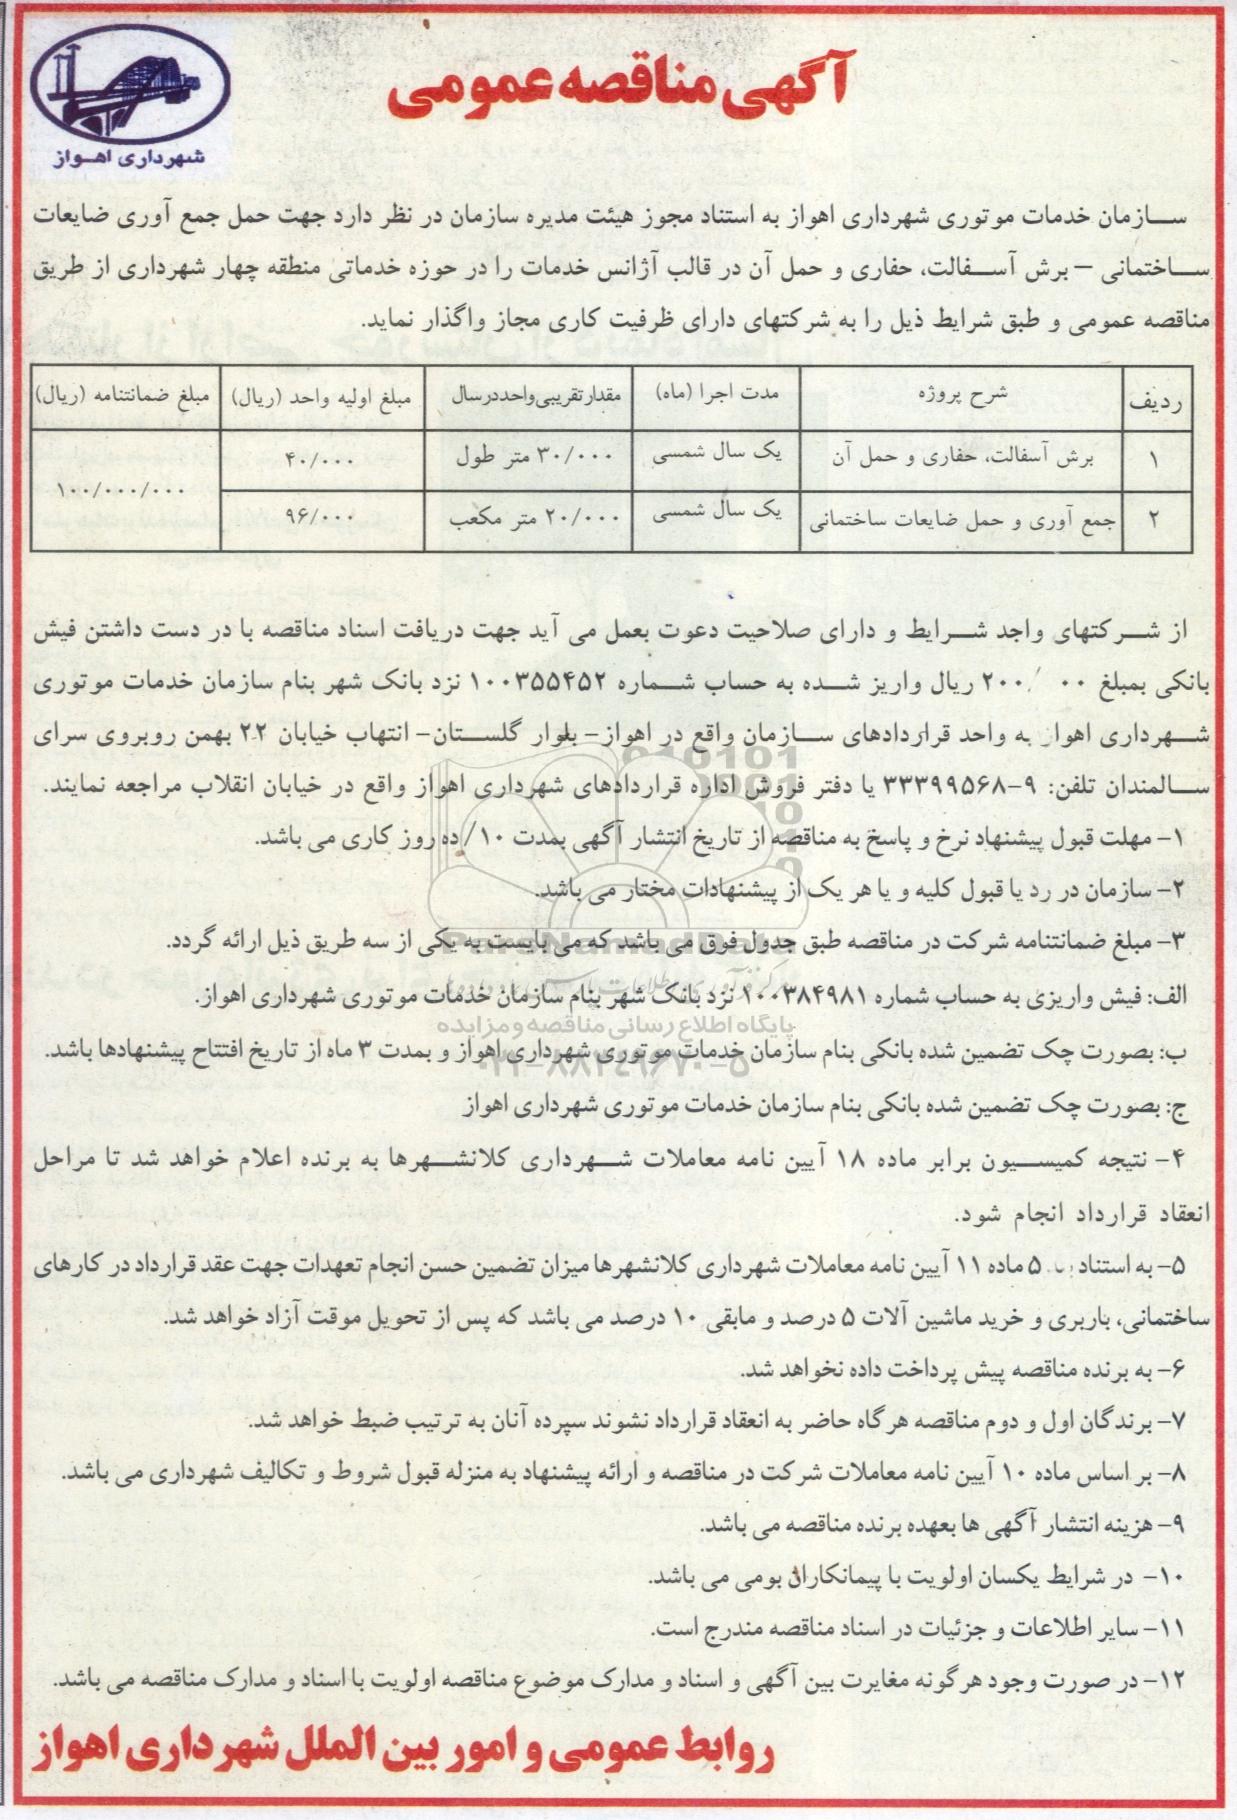 آگهی مناقصه عمومی
شهرداری اهواز
سازمان خدمات موتوری شهرداری اهواز به استناد مجوز هیئت مدیره سازمان در نظر دارد جهت حمل جمع آوری ضایعات
ساختمانی – برش آسفالت، حفاری و حمل آن در قالب آژانس خدمات را در حوزه خدماتی منطقه چهار شهرداری از طریق
مناقصه عمومی و طبق شرایط ذیل را به شرکتهای دارای ظرفیت کاری مجاز واگذار نماید.
ردیف شرح پروژه مدت اجرا (ماه) مقدار تقریبی واحد در سال مبلغ اولیه واحد (ریال) مبلغ ضمانتنامه (ریال)
۱ برش آسفالت، حفاری و حمل آن یک سال شمسی ۳۰/۰۰۰ متر طول ۴۰/۰۰۰ ۱۰۰/۰۰۰/۰۰۰
۲ جمع آوری و حمل ضایعات ساختمانی یک سال شمسی ۲۰/۰۰۰ متر مکعب ۹۶/۰۰۰
از شرکتهای واجد شرایط و دارای صلاحیت دعوت بعمل می آید جهت دریافت اسناد مناقصه با در دست داشتن فیش
بانکی بمبلغ ریال واریز شده به حساب شماره ۱۰۰۳۵۵۴۵۲ نزد بانک شهر بنام سازمان خدمات موتوری
شهرداری اهواز به واحد قراردادهای سازمان واقع در اهواز– بلوار گلستان– انتهاب خیابان ۲۲ بهمن روبروی سرای
سالمندان تلفن: ۹-۳۳۳۹۹۵۶۸ یا دفتر فروش اداره قراردادهای شهرداری اهواز واقع در خیابان انقلاب مراجعه نمایند.
۱- مهلت قبول پیشنهاد نرخ و پاسخ به مناقصه از تاریخ انتشار آگهی بمدت ۱۰/ ده روز کاری می باشد.
۲- سازمان در رد یا قبول کلیه و یا هر یک از پیشنهادات مختار می باشد.
۳- مبلغ ضمانتنامه شرکت در مناقصه طبق جدول فوق می باشد که می بایست به یکی از سه طریق ذیل ارائه گردد.
ParsNamadData
الف: فیش واریزی به حساب شماره ۱۰۰۳۸۴۹۸۱ نزد بانک شهر بنام سازمان خدمات موتوری شهرداری اهواز.
پایگاه اطلاع رسانی مناقصه و مزایده
ب: بصورت چک تضمین شده بانکی بنام سازمان خدمات موتوری شهرداری اهواز و بمدت ۳ ماه از تاریخ افتتاح پیشنهادها باشد.
۰۲۱-۸۸۳۴۹۶۷۰-۵
ج: بصورت چک تضمین شده بانکی بنام سازمان خدمات موتوری شهرداری اهواز
۴- نتیجه کمیسیون برابر ماده ۱۸ آیین نامه معاملات شهرداری کلانشهرها به برنده اعلام خواهد شد تا مراحل
انعقاد قرارداد انجام شود.
۵- به استناد ۵ ماده ۱۱ آیین نامه معاملات شهرداری کلانشهرها میزان تضمین حسن انجام تعهدات جهت عقد قرارداد در کارهای
ساختمانی، باربری و خرید ماشین آلات ۵ درصد و مابقی ۱۰ درصد می باشد که پس از تحویل موقت آزاد خواهد شد.
۶- به برنده مناقصه پیش پرداخت داده نخواهد شد.
۷- برندگان اول و دوم مناقصه هرگاه حاضر به انعقاد قرارداد نشوند سپرده آنان به ترتیب ضبط خواهد شد.
۸- بر اساس ماده ۱۰ آیین نامه معاملات شرکت در مناقصه و ارائه پیشنهاد به منزله قبول شروط و تکالیف شهرداری می باشد.
۹- هزینه انتشار آگهی ها بعهده برنده مناقصه می باشد.
۱۰- در شرایط یکسان اولویت با پیمانکاران بومی می باشد.
۱۱- سایر اطلاعات و جزئیات در اسناد مناقصه مندرج است.
۱۲- در صورت وجود هرگونه مغایرت بین آگهی و اسناد و مدارک موضوع مناقصه اولویت با اسناد و مدارک مناقصه می باشد.
روابط عمومی و امور بین الملل شهرداری اهواز